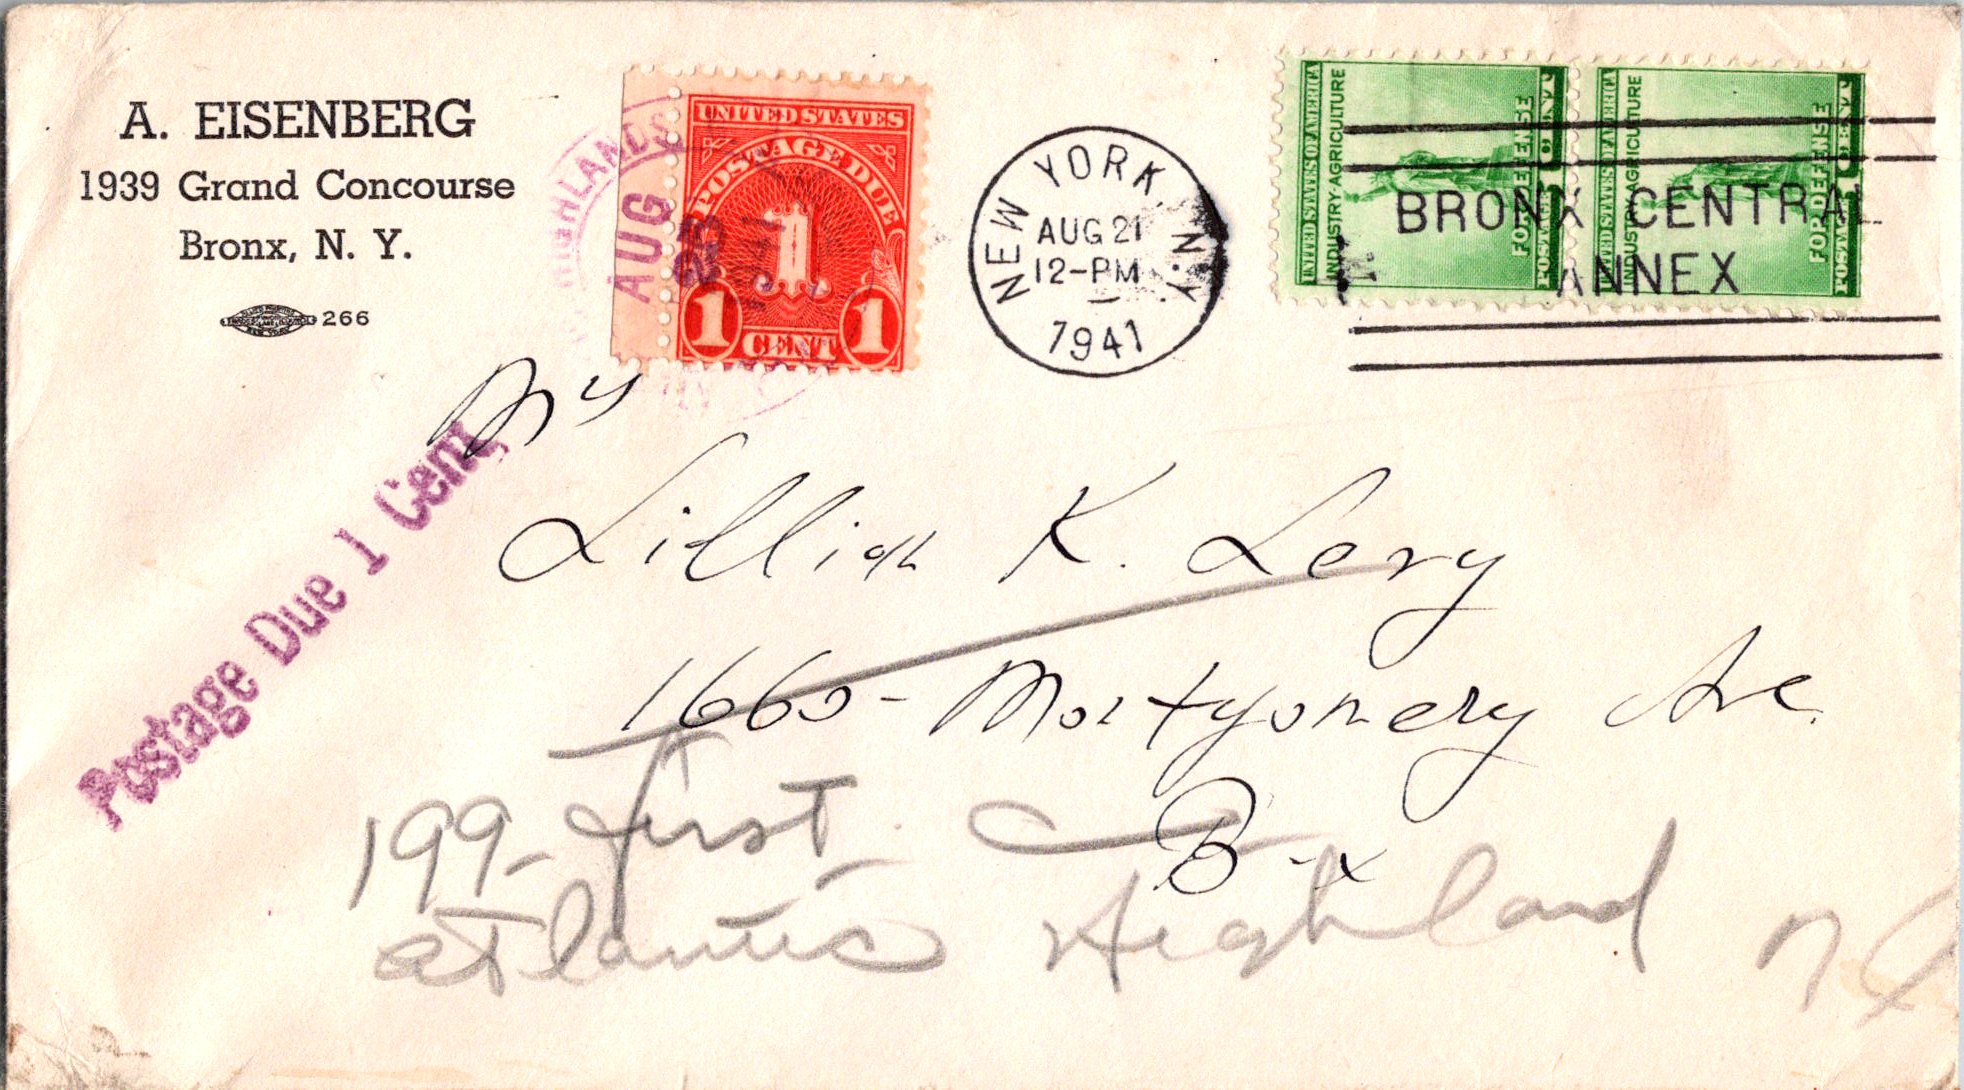 A. EISENBERG
1939 Grand Concourse
Bronx, N. Y.
266
HIGHLANDS
AUG
23
1941
UNITED STATES
POSTAGE DUE
1
1 CENT 1
NEW YORK, N.Y.
AUG 21
12-PM
1941
UNITED STATES OF AMERICA
INDUSTRY·AGRICULTURE
FOR DEFENSE
POSTAGE 1 CENT
UNITED STATES OF AMERICA
INDUSTRY·AGRICULTURE
FOR DEFENSE
POSTAGE 1 CENT
BRONX CENTRAL
ANNEX
Postage Due 1 Cent
Lillian K. Levy
1660- Montgomery Ave.
B-x
199- first
atlantic Highland N J